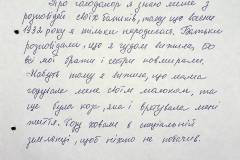 Про голодомор я знаю лише з
розповідей своїх батьків, тому що весною
1932 року я тільки народилася. Батьки
розповідали, що я чудом вижила, бо
всі мої брати і сестри повмирали.
Навіть тому я вижила, що мама
годувала мене своїм молоком, та
ще була коза, яка і врятувала мені
життя. Козу ховали в спеціальній
землянці, щоб ніхто не побачив.